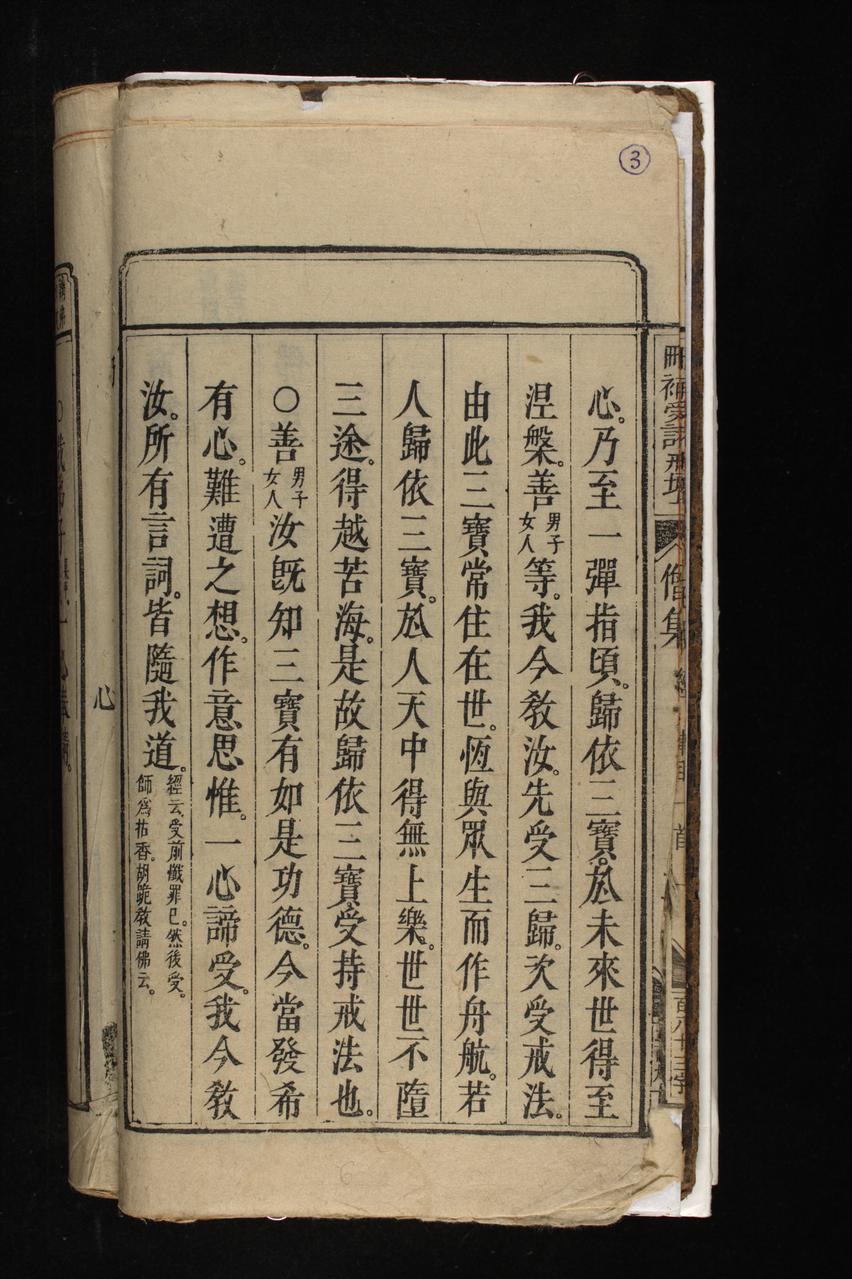 3
刪補受
僧集
百八十三字
心。乃至一彈指頃。歸依三寶。於未來世得至
涅槃。善男子女人等。我今教汝。先受三歸。次受戒法。
由此三寶常住在世。恆與眾生而作舟航。若
人歸依三寶。於人天中得無上樂。世世不墮
三途。得越苦海。是故歸依三寶。受持戒法也。
○善男子女人汝既知三寶有如是功德。今當發希
有心。難遭之想。作意思惟。一心諦受。我今教
汝。所有言詞。皆隨我道。經云。受前懺罪已。然後受。師為拈香。胡跪教請佛云。
心